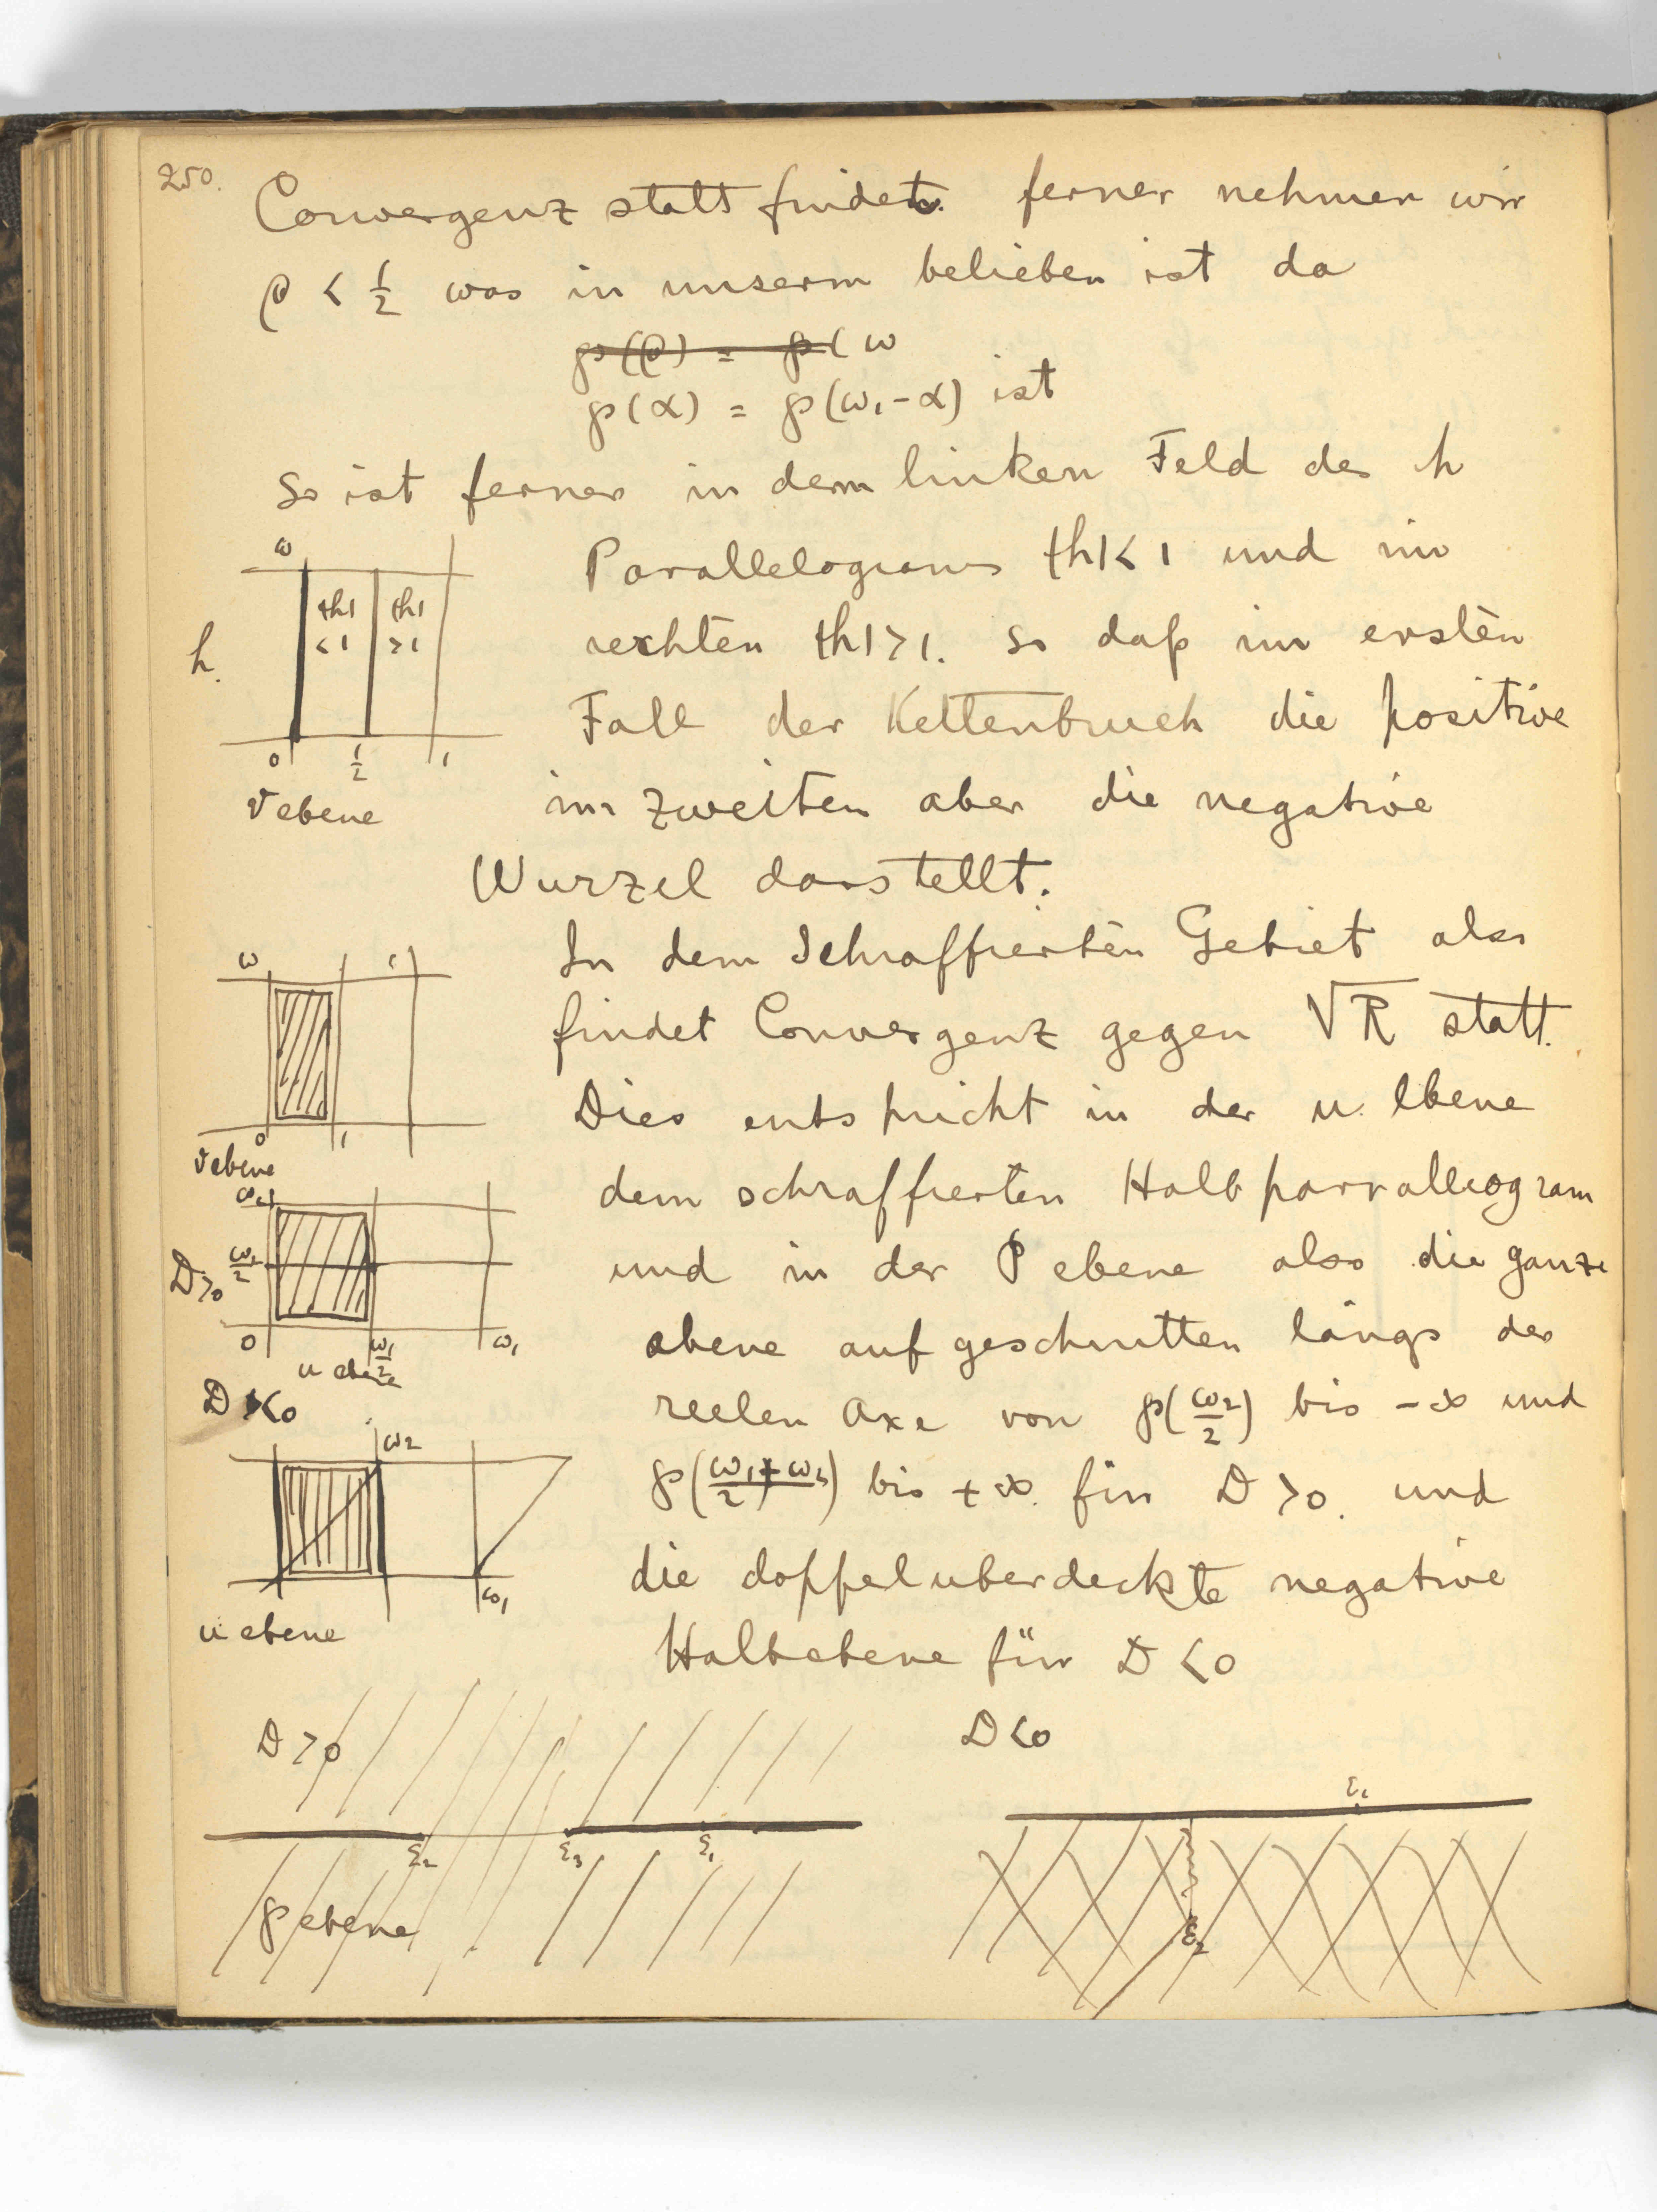 250.
Convergenz statt findet. ferner nehmen wir
ρ < 1/2 was in unserm belieben ist da
℘(ρ) = ℘( ω
℘(α) = ℘(ω₁-α) ist
so ist ferner in dem linken Feld des h
Parallelograms |h|< 1 und im
rechten |h|>1. so daß im ersten
Fall der Kettenbruch die positive
im zweiten aber die negative
Wurzel darstellt.
ω
|h| |h|
<1 >1
h.
0 1/2 1
v ebene
In dem Schraffierten Gebiet also
findet Convergenz gegen √R statt.
Dies entspricht in der u. Ebene
dem schraffierten Halbparralleogram
und in der P ebene also die ganze
ebene aufgeschnitten längs der
reelen Axe von ℘(ω₂/2) bis -∞ und
℘((ω₁+ω₂)/2) bis +∞. für D >0. und
die doppeluberdeckte negative
Halbebene für D <0
ω
0 1
v ebene
D>0
0 ω₁/2 ω₁
u ebene
D <0
ω₂
ω₁
u ebene
D >0
ε₂ ε₃ ε₁
℘ ebene
D <0
ε₁
ε₂